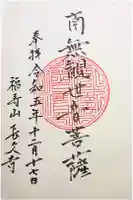 奉拝 令和五年十二月十七日
南無観世音菩薩
福寿山 長久寺